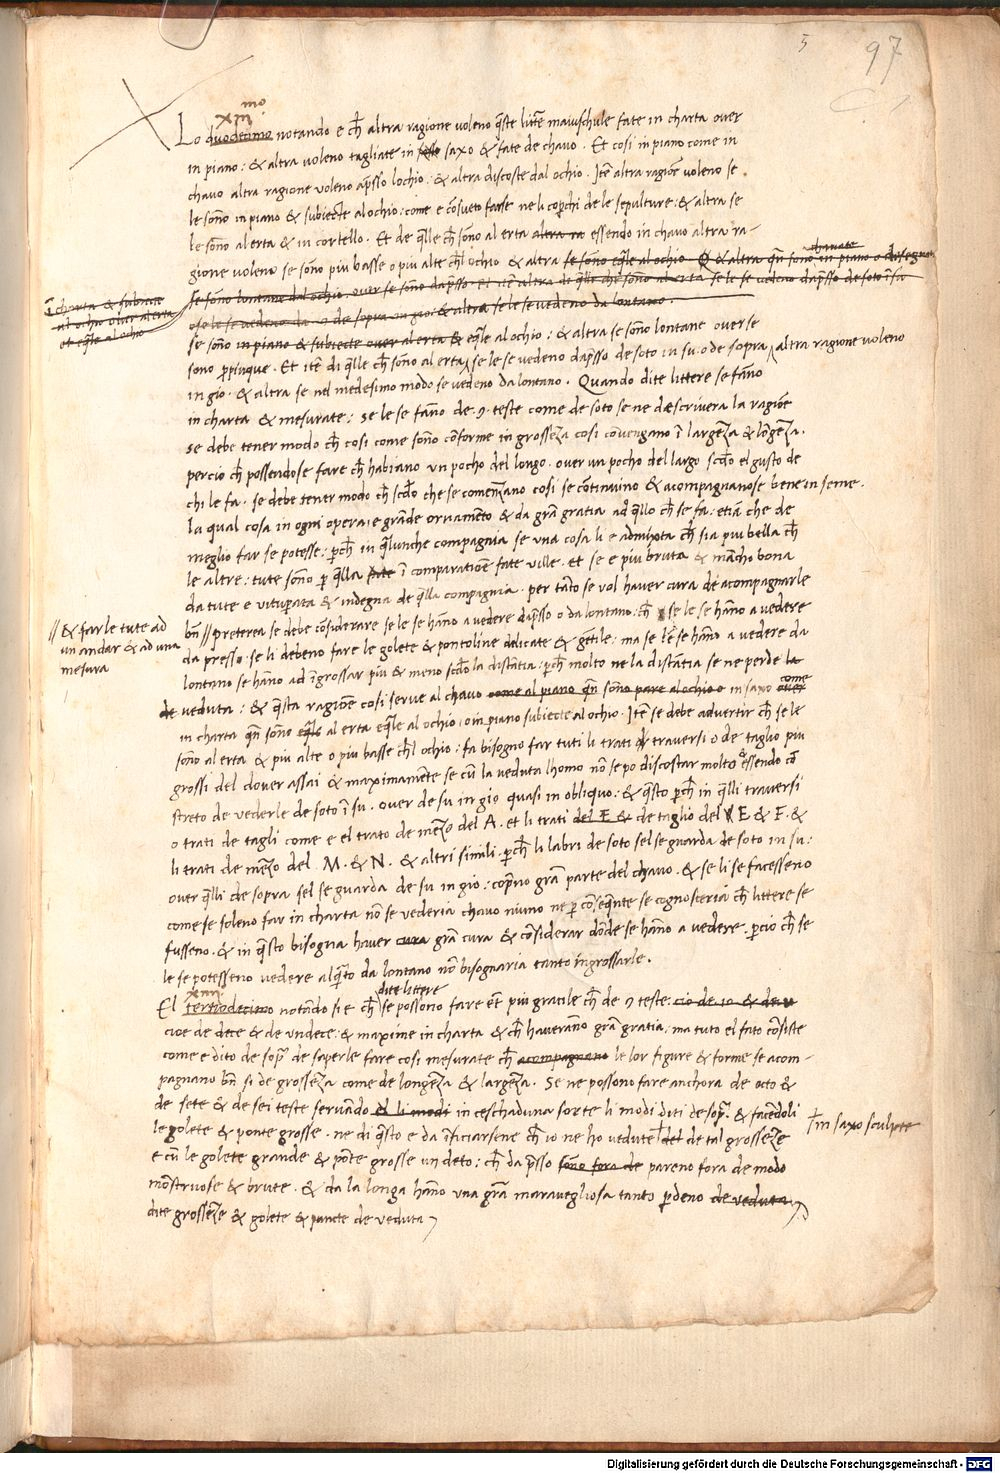 5
97
xiii mo
Lo duodecimo notando e ch̄ altra ragione voleno q̄ste litr̄e maiuschule fate in charta over
in piano: & altra voleno tagliate in saxo & fate de chavo. Et cosi in piano come in
chavo altra ragione voleno ap̄sso lochio: & altra discoste dal ochio. Itē altra ragiōe voleno se
le sōno in piano & subiecte al ochio: come e cōsueto farse neli cop̄rchi de le sepulture: & altra se
le sōno al erta & in cortello. Et de q̄lle ch̄ sōno al erta altra ra essendo in chavo altra ra-
gione voleno se sōno piu basse o piu alte ch̄l ochio & altra se sōno eq̄le al ochio. & altra qn̄ sōno in piano o disegnat
chavate
se sōno lontane dal ochio. over se sōno dap̄sso. et itē altra di q̄lle che sōno al erta se le se vedeno dap̄sso de soto ī su
ose le se vedeno da de sopra in gio: & altra se le se vedeno da lontano.
ī charta & subiecte
al ochio over al erta
et eq̄le al ochio
se sōno in piano & subiecte over al erta & eq̄le al ochio: & altra se sōno lontane over se
sono p̄pinque. Et itē di q̄lle ch̄ sōno al erta se le se vedeno dap̄sso de soto in su. o de sopra altra ragione voleno
in gio. & altra se nel medesimo modo se vedeno da lontano. Quando dite littere se fāno
in charta & mesurate: se le se fāno de 9 teste come de soto se ne descrivera la ragiōe
se debe tener modo ch̄ cosi come sōno cōforme in grossen̄za cosi cōvengano ī largen̄za & lōgen̄za.
percio ch̄ possendose fare ch̄ habiano un pocho del longo. over un pocho del largo scd̄o el gusto de
chi le fa. se debe tener modo ch̄ scd̄o che se comenzano cosi se cōtinuino & acompagnanose bene in seme.
la qual cosa in ogni opera, e grāde ornamēto & da grā gratia ad q̄llo ch̄ se fa: etiā che de
meglio far se potesse: p̄ch̄ in q̄lunche compagnia se una cosa li e admixta ch̄ sia piu bella ch̄
le altre: tute sōno p̄ q̄lla fate ī comparatiōe fate ville. et se e piu bruta & mācho bona
da tute e vitup̄ata & indegna de q̄lla compagnia. per tāto se vol haver cura de acompagnarle
// & far le tute ad
un andar & ad una
mesura
bn̄ // preterea se debe cōsiderare se le se hāno a vedere dap̄sso o da lontano: ch̄ se le se hāno a vedere
da presso: se li debeno fare le golete & pontoline delicate & gētile: ma se le se hāno a vedere da
lontano se hāno ad īgrossar piu & meno scd̄o la distātia: p̄ch̄ molto ne la distātia se ne perde la
de veduta: & q̄sta ragiōe cosi serve al chavo come al piano qn̄ sōno pare al ochio o in saxo over
come
in charta qn̄ sōno eq̄le al erta eq̄le al ochio, o in piano subiecte al ochio. Itē se debe advertir ch̄ se le
sōno al erta & piu alte o piu basse ch̄l ochio: fa bisogno far tuti li trati traversi o de taglio piu
grossi del dover assai & maximamēte se cū la veduta lhomo nō se po discostar molto essendo cō
streto de vederle de soto ī su. over de su in gio quasi in obliquo: & q̄sto p̄ch̄ in q̄lli traversi
o trati de tagli come e el trato de mēzo del A. et li trati del E & de taglio del E & F. &
li trati de mēzo del M. & N. & altri simili. p̄ch̄ li labri de soto sel se guarda de soto in su:
over q̄lli de sopra sel se guarda de su in gio: cop̄rno grā parte del chavo. & se li se facesseno
come se soleno far in charta nō se vederia chavo niuno ne p̄ cōseq̄nte se cognosceria ch̄ littere se
fusseno. & in q̄sto bisogna haver cura grā cura & cōsiderar dōde se hāno a vedere. p̄cio ch̄ se
le se potesseno vedere alq̄to da lontano nō bisognaria tanto īngrossarle.
xiiii
dite littere
El tertiodecimo notādo si e ch̄ se possono fare ēt piu gracile ch̄ de 9 teste. cio de 10 & de
cioe de dece & de undece: & maxime in charta & ch̄ haverāno grā gratia: ma tuto el fato cōsiste
come e dito de sop̄ de saperle fare cosi mesurate ch̄ acompagnano le lor figure & forme se acom-
pagnano bn̄ si de grossen̄za come de longen̄za & largen̄za. Se ne possono fare anchora de octo &
de sete & de sei teste servādo & li modi in ceschaduna sorte li modi diti de sop̄. & facēdoli
le golete & ponte grosse. ne di q̄sto e da īficiarsene ch̄ io ne ho vedute del de tal grossēze
in saxo sculpte
e cū le golete grande & pōte grosse un deto: ch̄ da p̄sso sōno fora de pareno fora de modo
mōstruose & brute. & da la longa hāno una grā maravegliosa tanto p̄deno de veduta
dite grossēze & golete & poncte de veduta
Digitalisierung gefördert durch die Deutsche Forschungsgemeinschaft - DFG